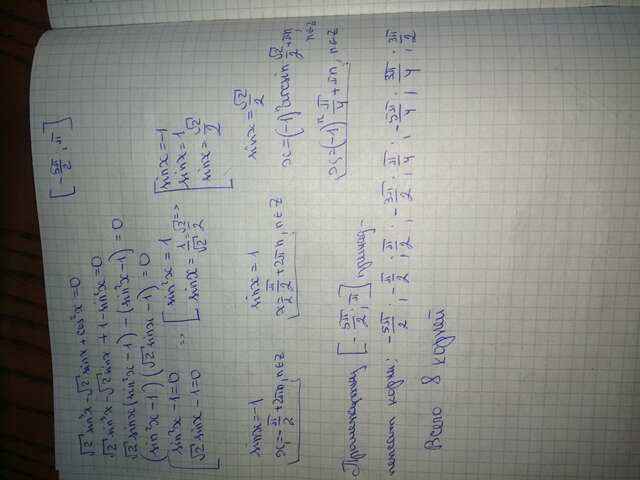 [-5π/2; π]
√2 sin³x - √2 sinx + cos²x = 0
√2 sin³x - √2 sinx + 1 - sin²x = 0
√2 sinx (sin²x - 1) - (sin²x - 1) = 0
(sin²x - 1)(√2 sinx - 1) = 0
[sin²x - 1 = 0 => [sin²x = 1 => [sinx = -1
[√2 sinx - 1 = 0 [sinx = 1/√2 = √2/2 [sinx = 1
[sinx = √2/2
sinx = -1 sinx = 1 sinx = √2/2
x = -π/2 + 2πn, n∈Z x = π/2 + 2πn, n∈Z x = (-1)ⁿ arcsin √2/2 + πn, n∈Z
x = (-1)ⁿ π/4 + πn, n∈Z
Промежутку [-5π/2; π] принад-
лежат корни: -5π/2; -π/2; π/2; -3π/2; π/4; -5π/4; 3π/4; 3π/2
Всего 8 корней